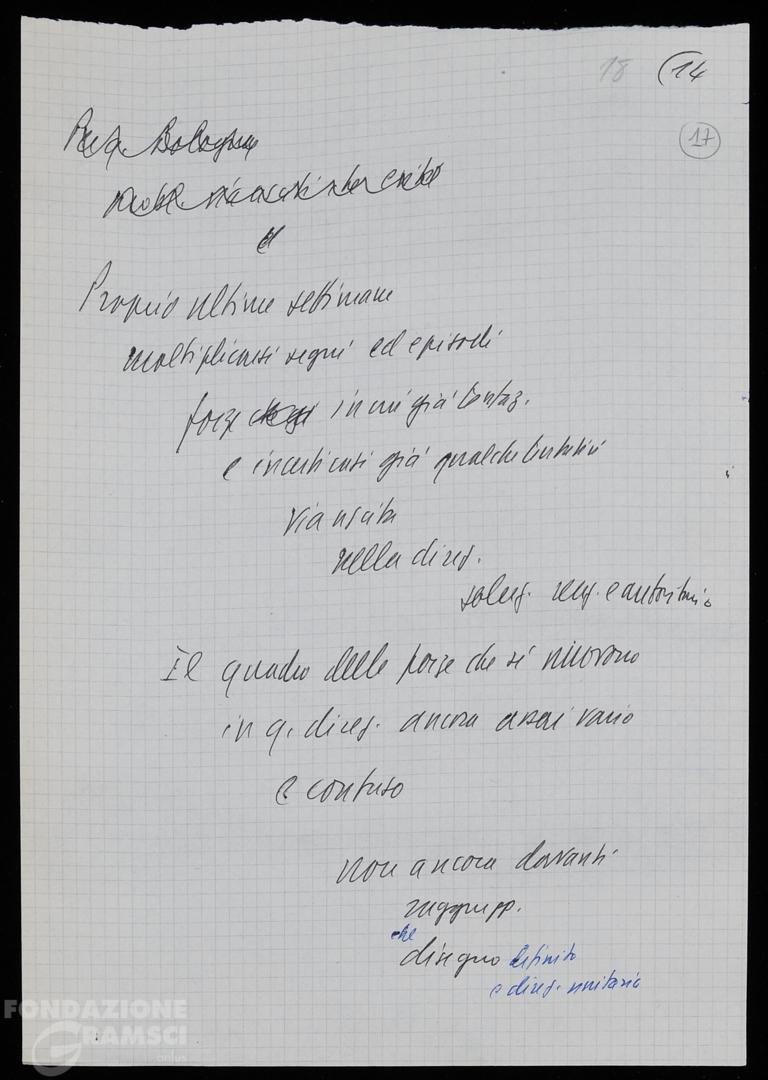 18 (14
17
Bologna
Proprio ultime settimane
moltiplicarsi segni ed episodi
forze in cui già tentaz.
e incerti cati già qualche tentativi
via uscita
nella direz.
soluz. reaz. e autoritaria
Il quadro delle forze che si muovono
in q. direz. ancora assai vario
e confuso
non ancora davanti
raggrupp.
che
disegno definito
e direz. unitaria
FONDAZIONE
GRAMSCI
onlus